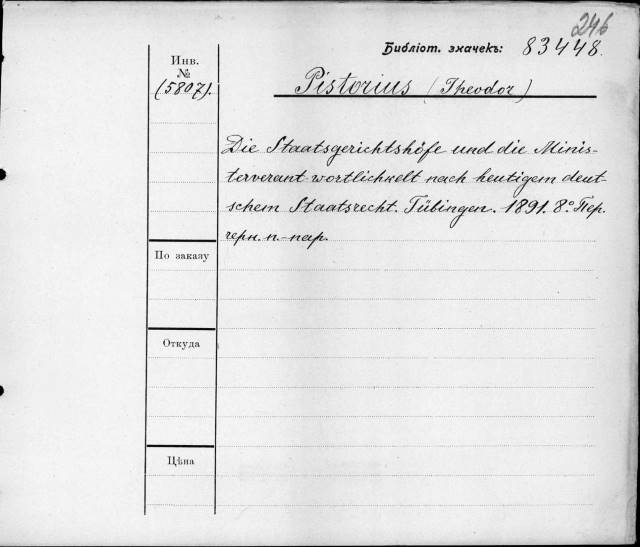 246
Библіот. значекъ: 83448.
Инв.
№
(5807).
Pistorius (Theodor)
Die Staatsgerichtshöfe und die Minis-
terverant-wortlichkelt nach heutigem deut-
schem Staatsrecht. Tübingen. 1891. 8º. Пер.
черн. п.-пар.
По заказу
Откуда
Цѣна